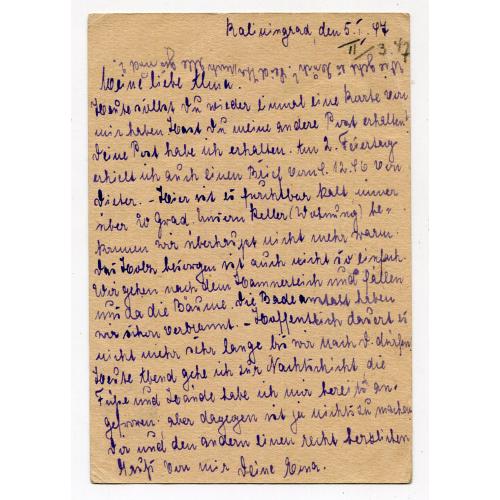 Kaliningrad, den 5.I.47
II/3.47
Wie geht es Dir?
Meine liebe Alma.
Heute sollst Du wieder einmal eine Karte von
mir haben Hast Du meine andere Post erhalten
Deine Post habe ich erhalten. Am 2. Feiertag
erhielt ich auch einen Brief vom 1.12.46 von
Dieter. - Hier ist es furchtbar kalt immer
über 20 Grad. Unsern Keller (Wohnung) be-
kommen wir überhaupt nicht mehr warm.
Das Holz besorgen ist auch nicht so einfach.
Wir gehen nach dem Hammerteich und fällen
uns da die Bäume. Die Badeanstalt haben
wir schon verbrannt. - Hoffentlich dauert es
nicht mehr sehr lange bis wir nach D. dürfen.
Heute Abend gehe ich zur Nachtschicht die
Füße und Hände habe ich mir bereits an-
gefroren. aber dagegen ist ja nichts zu machen
Dir und den andern einen recht herzlichen
Gruß von mir Deine